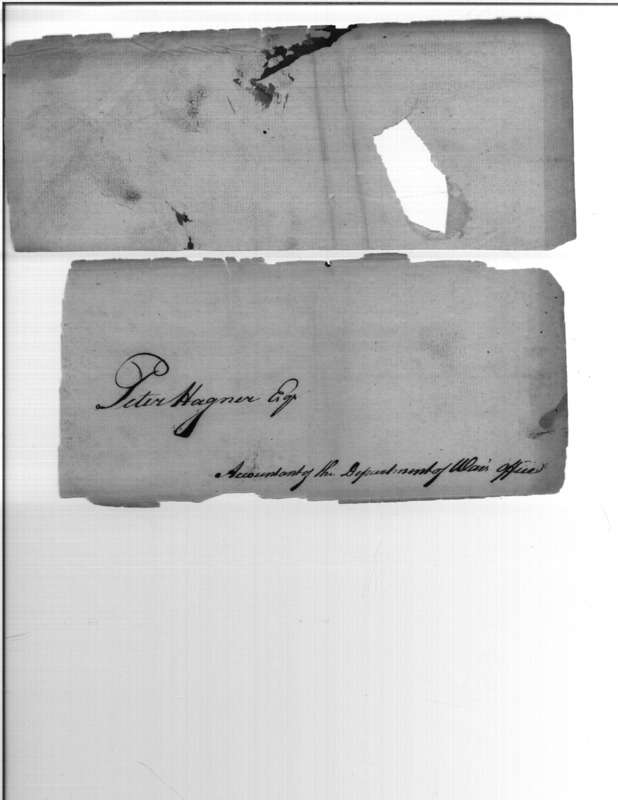 Peter Hagner Esqr
Accountant of the Department of War's Office